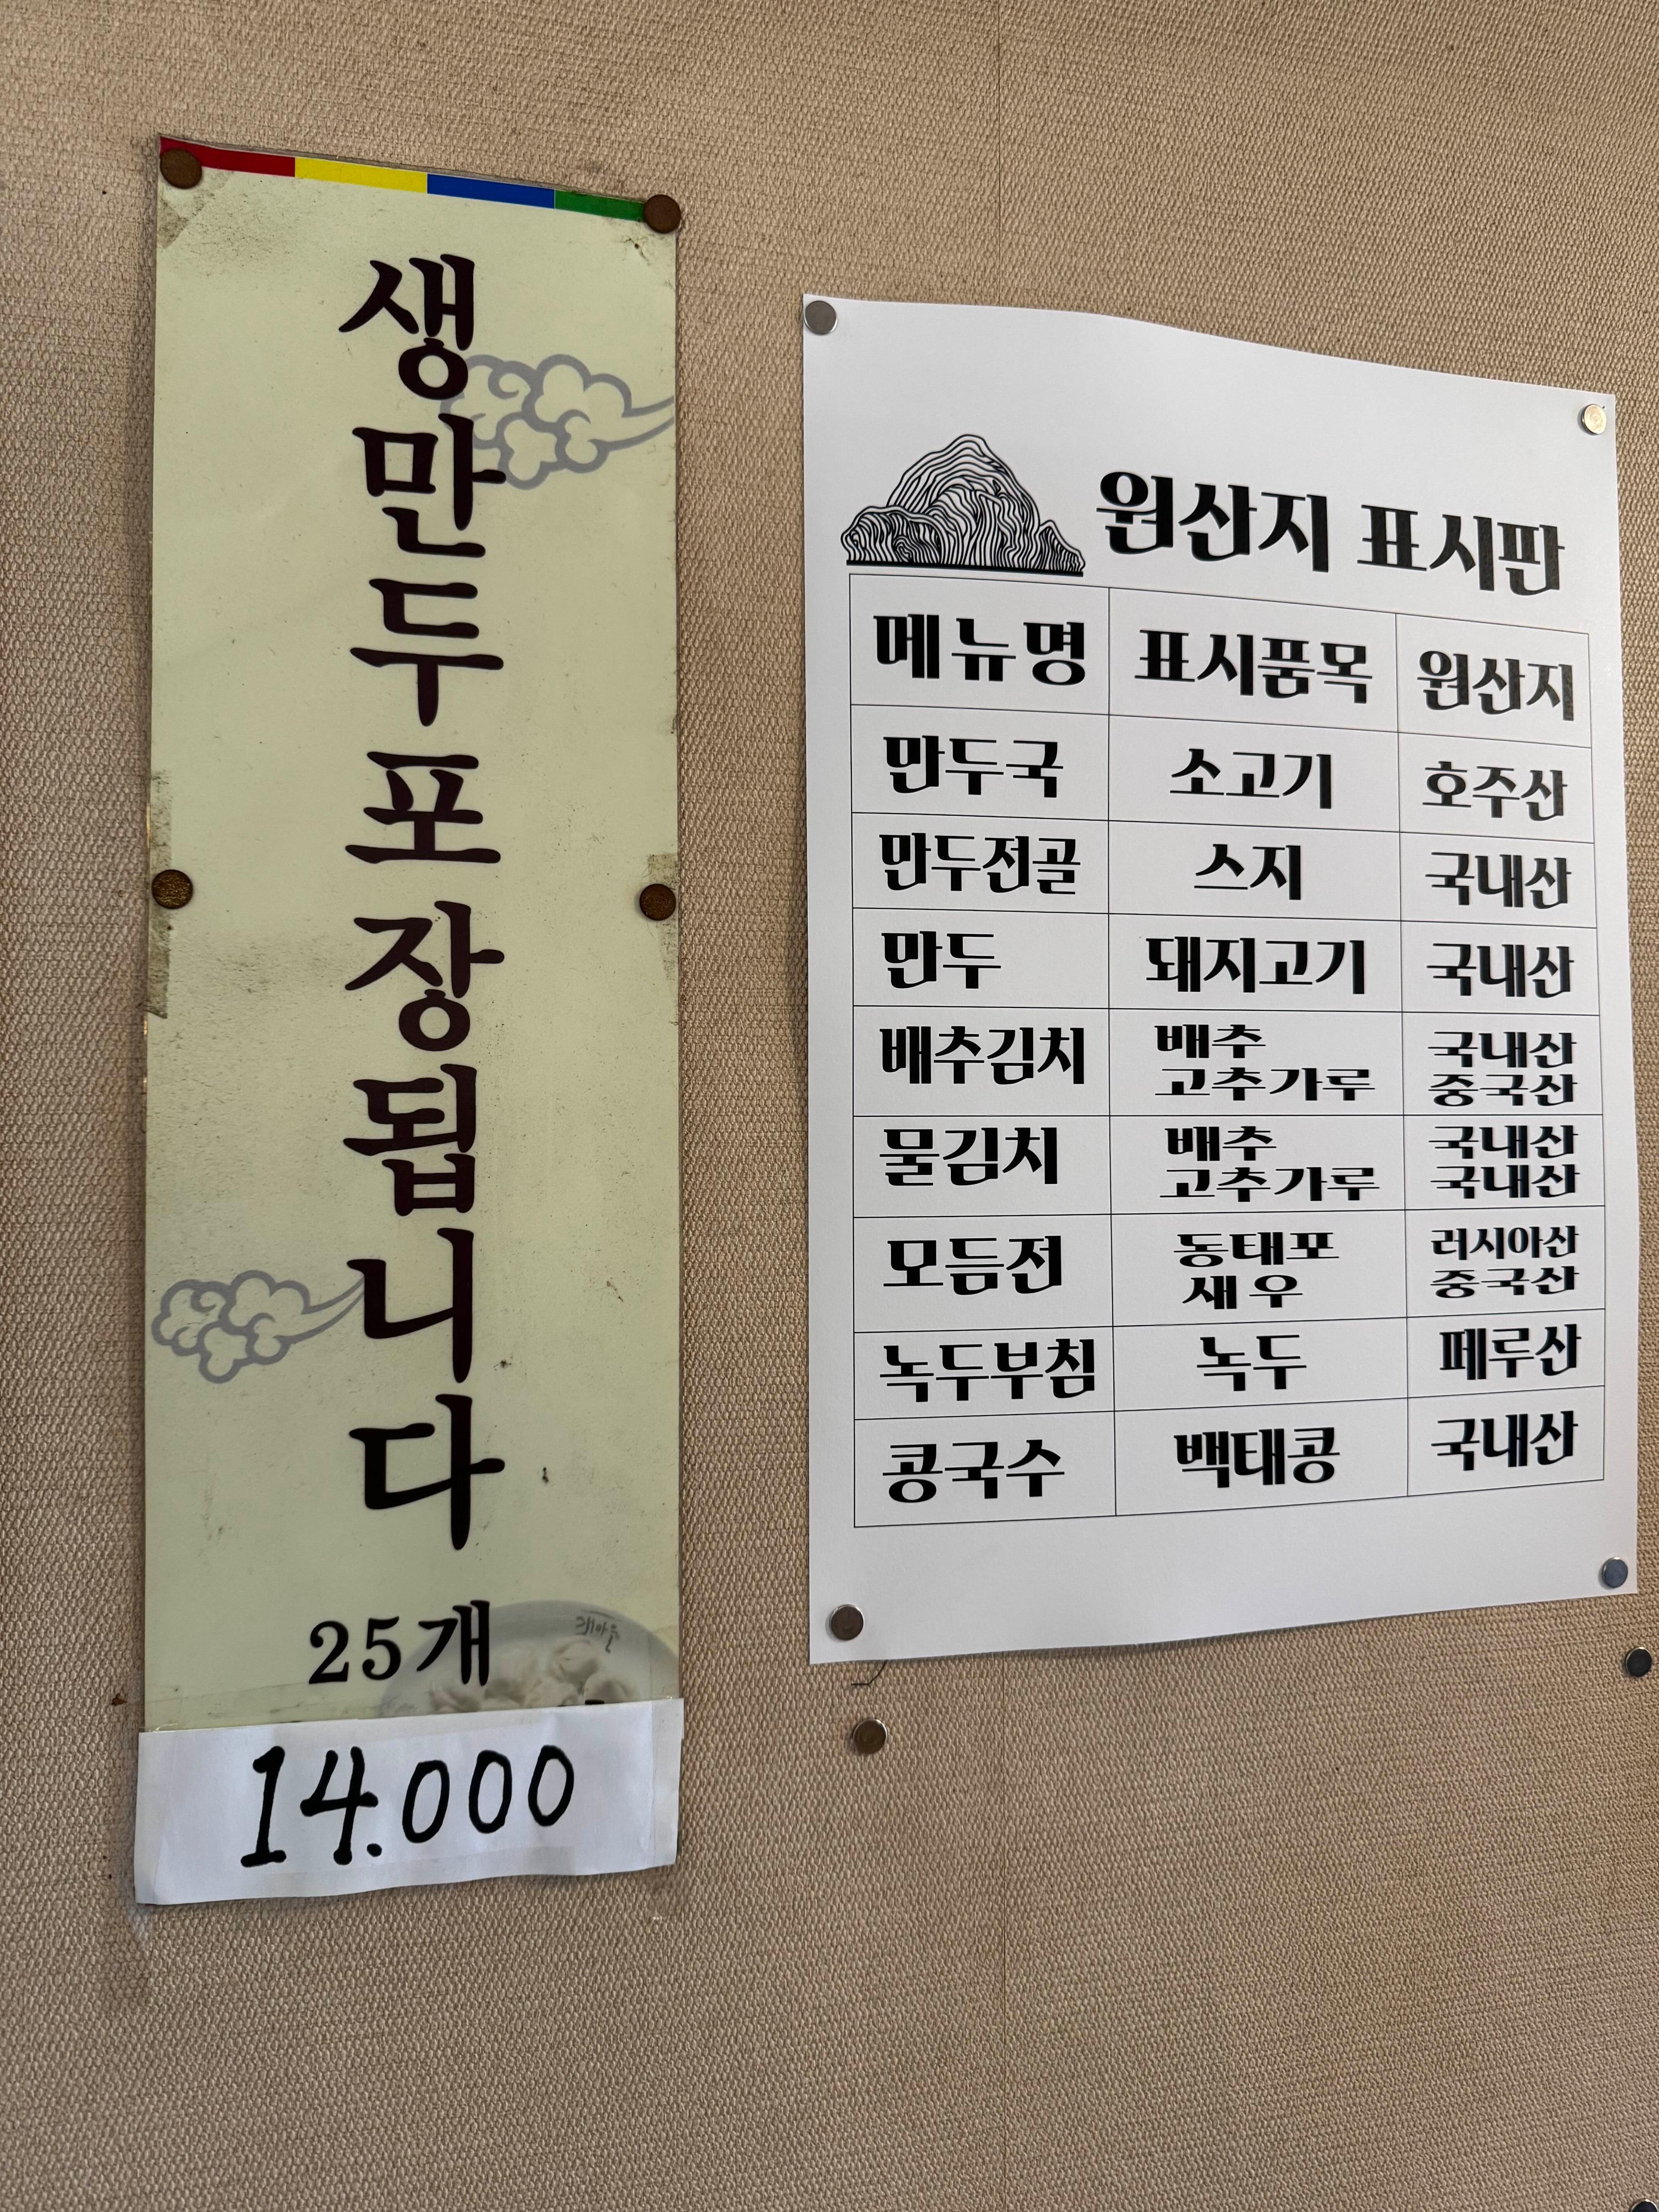 생만두포장됩니다
25개
14.000
원산지 표시판
메뉴명 표시품목 원산지
만두국 소고기 호주산
만두전골 스지 국내산
만두 돼지고기 국내산
배추김치 배추 국내산
고추가루 중국산
물김치 배추 국내산
고추가루 국내산
모듬전 동태포 러시아산
새우 중국산
녹두부침 녹두 페루산
콩국수 백태콩 국내산